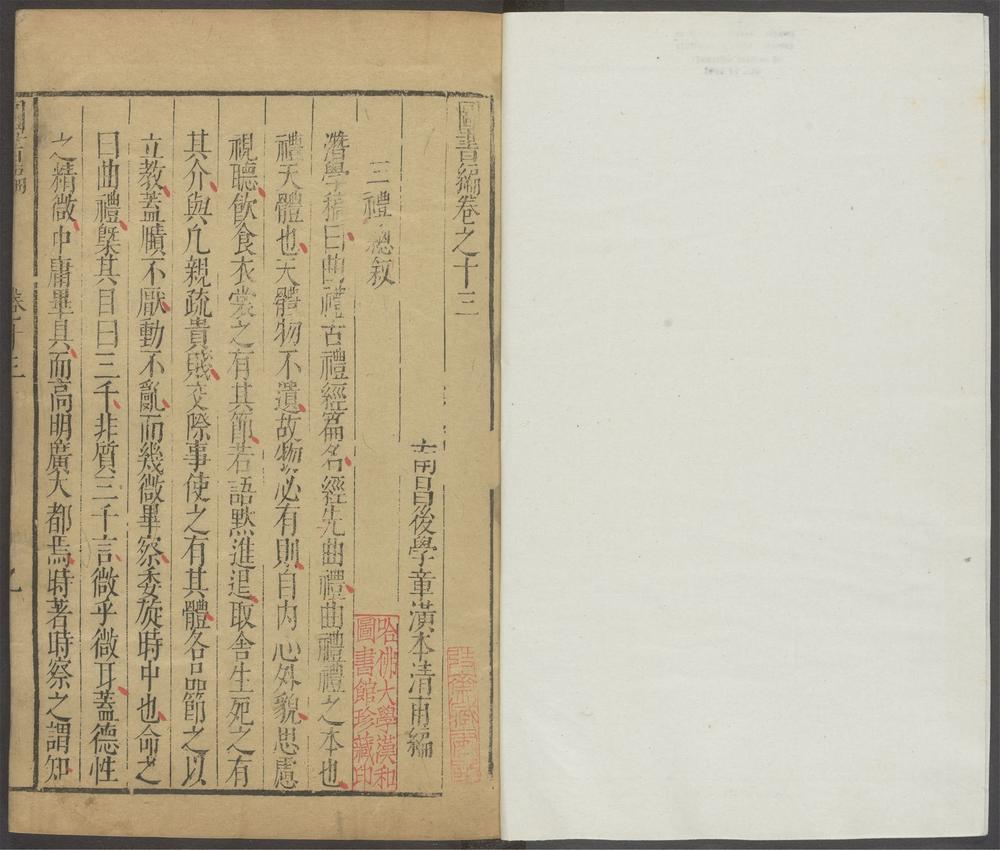 圖書編卷之十三
南昌後學章潢本清甫編
三禮總叙
潛學稿曰曲禮古禮經篇名經先曲禮曲禮禮之本也
禮天體也天體物不遺故物必有則自内心外貌思慮
視聽飲食衣裳之有其節若語默進退取舍生死之有
其介與凡親疏貴賤交際事使之有其體各品節之以
立教蓋賾不厭動不亂而幾微畢察委旋時中也命之
曰曲禮槩其目曰三千非質三千言微乎微耳蓋德性
之精微中庸畢具而高明廣大都焉時著時察之謂知
圖書編
卷十三
哈佛大學漢和
圖書館珍藏印